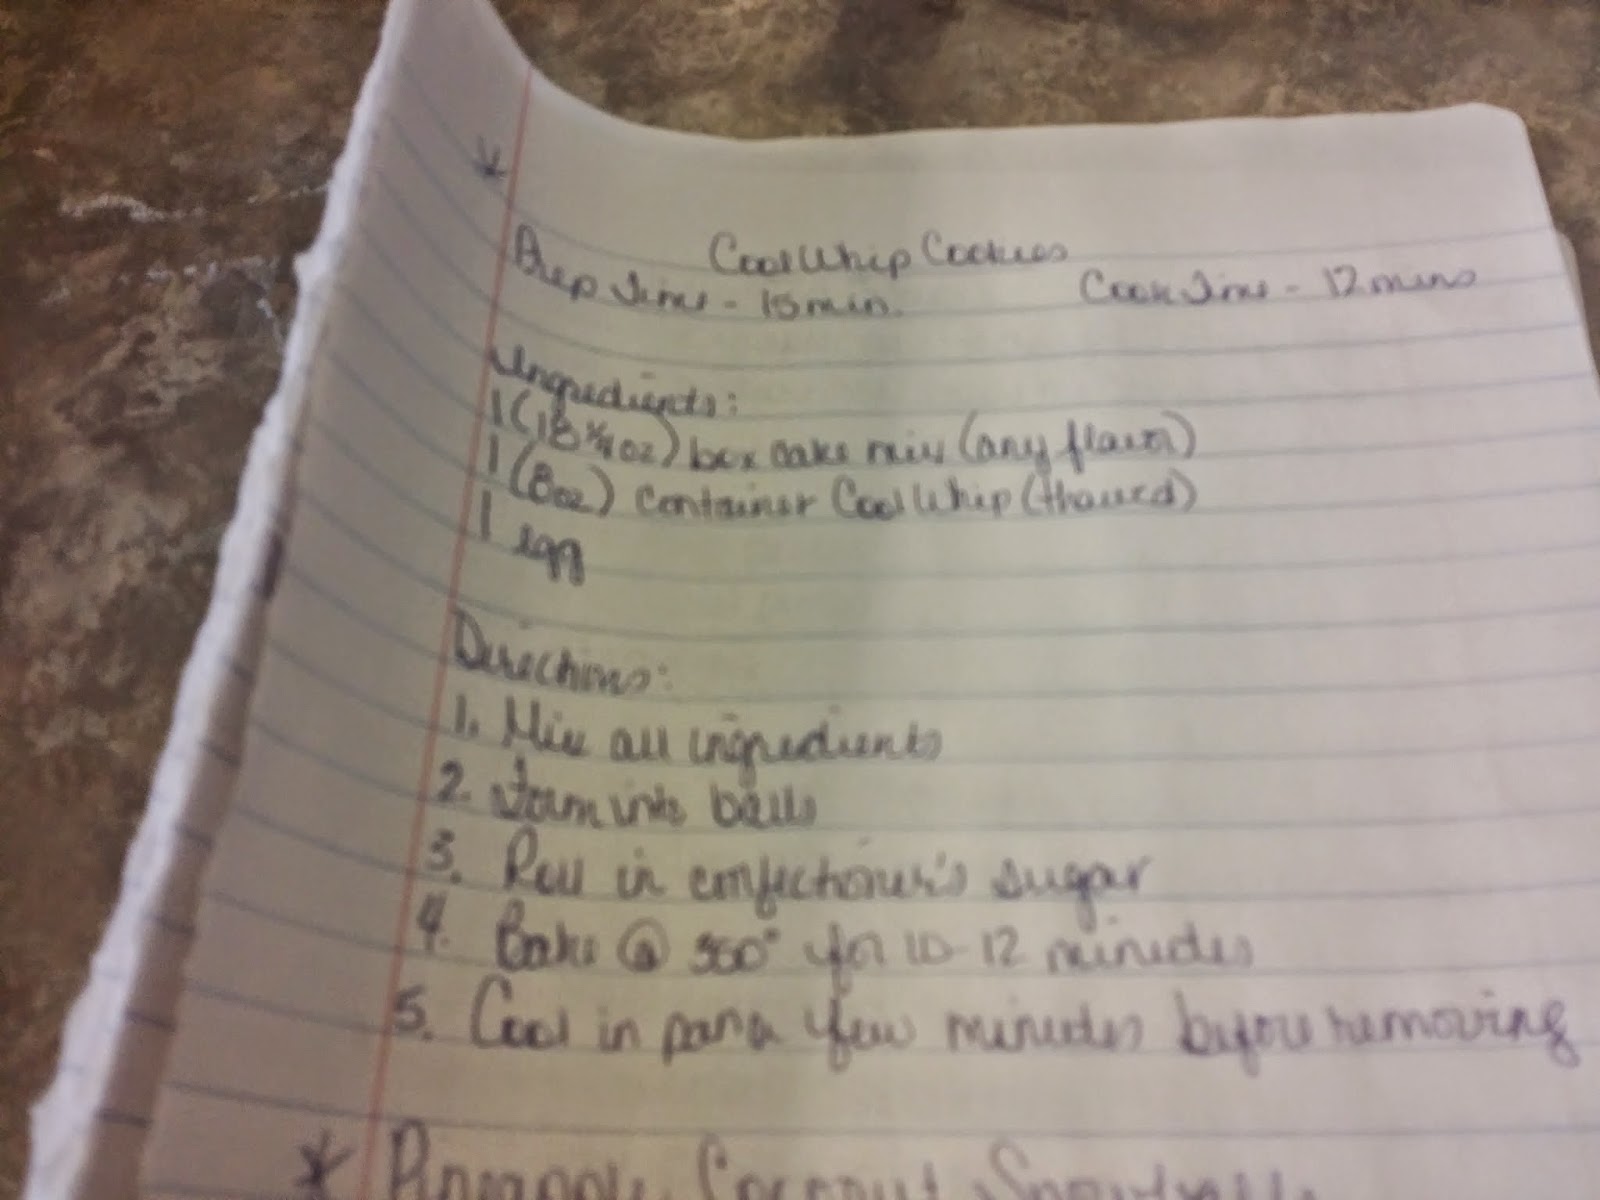 *
Cool Whip Cookies
Prep Time - 15 min. Cook Time - 12 mins
Ingredients:
1 (18 1/4 oz) box cake mix (any flavor)
1 (8oz) container Cool Whip (thawed)
1 egg
Directions:
1. Mix all ingredients
2. Form into balls
3. Roll in confectioner's sugar
4. Bake @ 350° for 10-12 minutes
5. Cool in pan a few minutes before removing
* Pineapple Coconut Snowballs